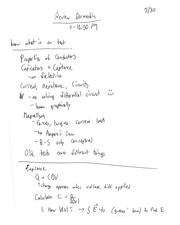 Review Densmore
5/30
7-10:30 PM
know what is on test
Properties of Conductors
Capacitors + Capacitance
- no dielectrics
Current, Resistance, Circuits
- no solving differential circuit
- know graphically
Magnetism
- Forces, torques, current loops
- Ampere's law
- B-S only conceptual
Old tests cover different things
Capacitance
Q = CΔV
charge appears when voltage diff applied
Calculate C = Q/ΔV
know
∫ E · ds
(gauss' law) to find E